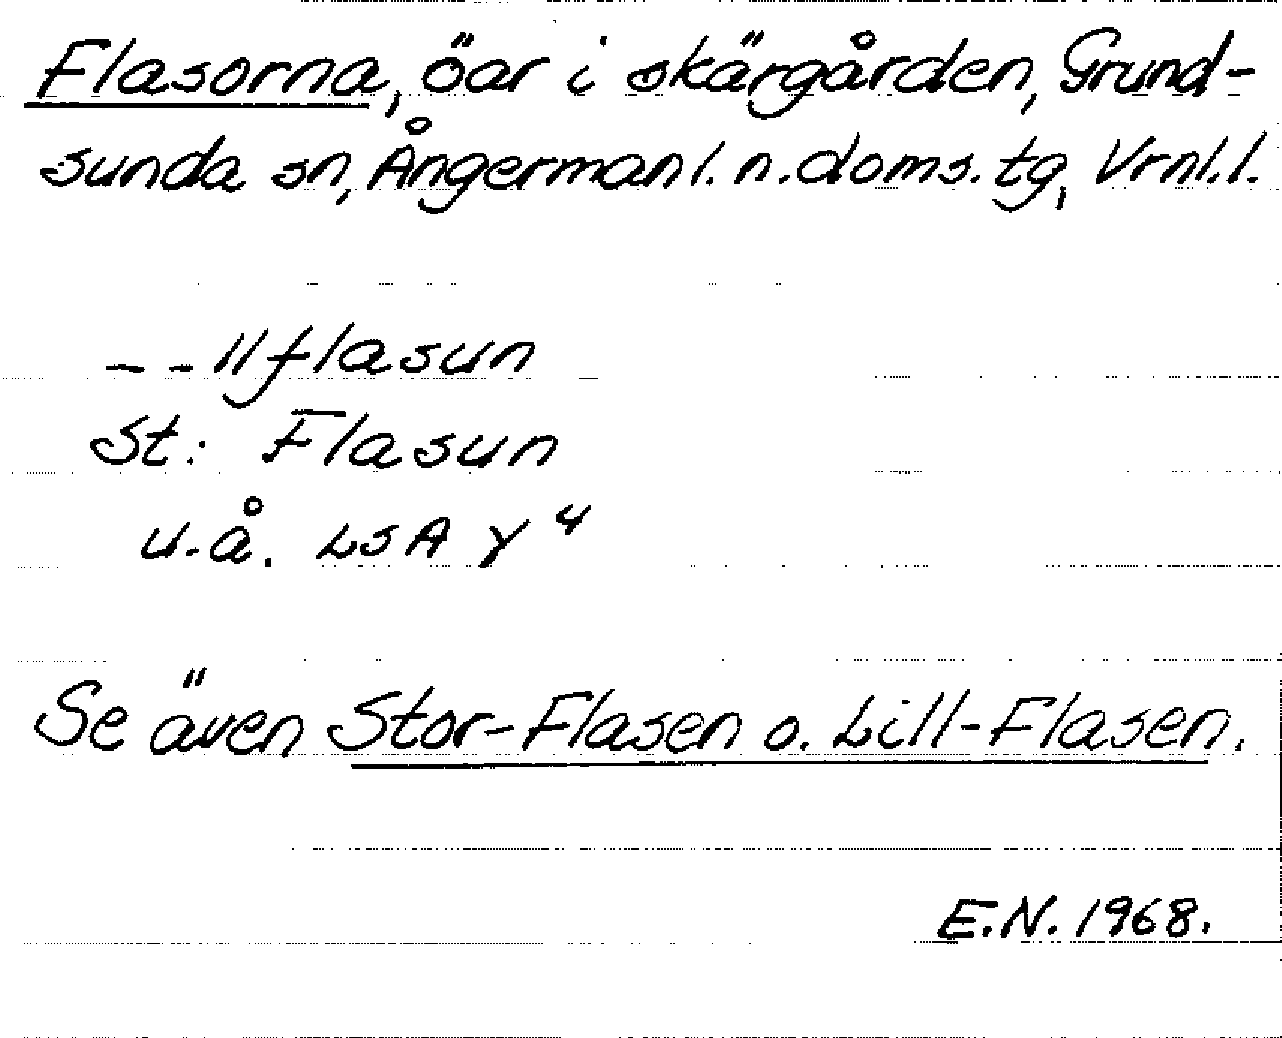 Flasorna, öar i skärgården, Grund-
sunda sn, Ångermanl. n. doms. tg, Vrnl. l.
– – llflasun
St: Flasun
u.å. LSA Y 4
Se även Stor-Flasen o. Lill-Flasen.
E.N. 1968.